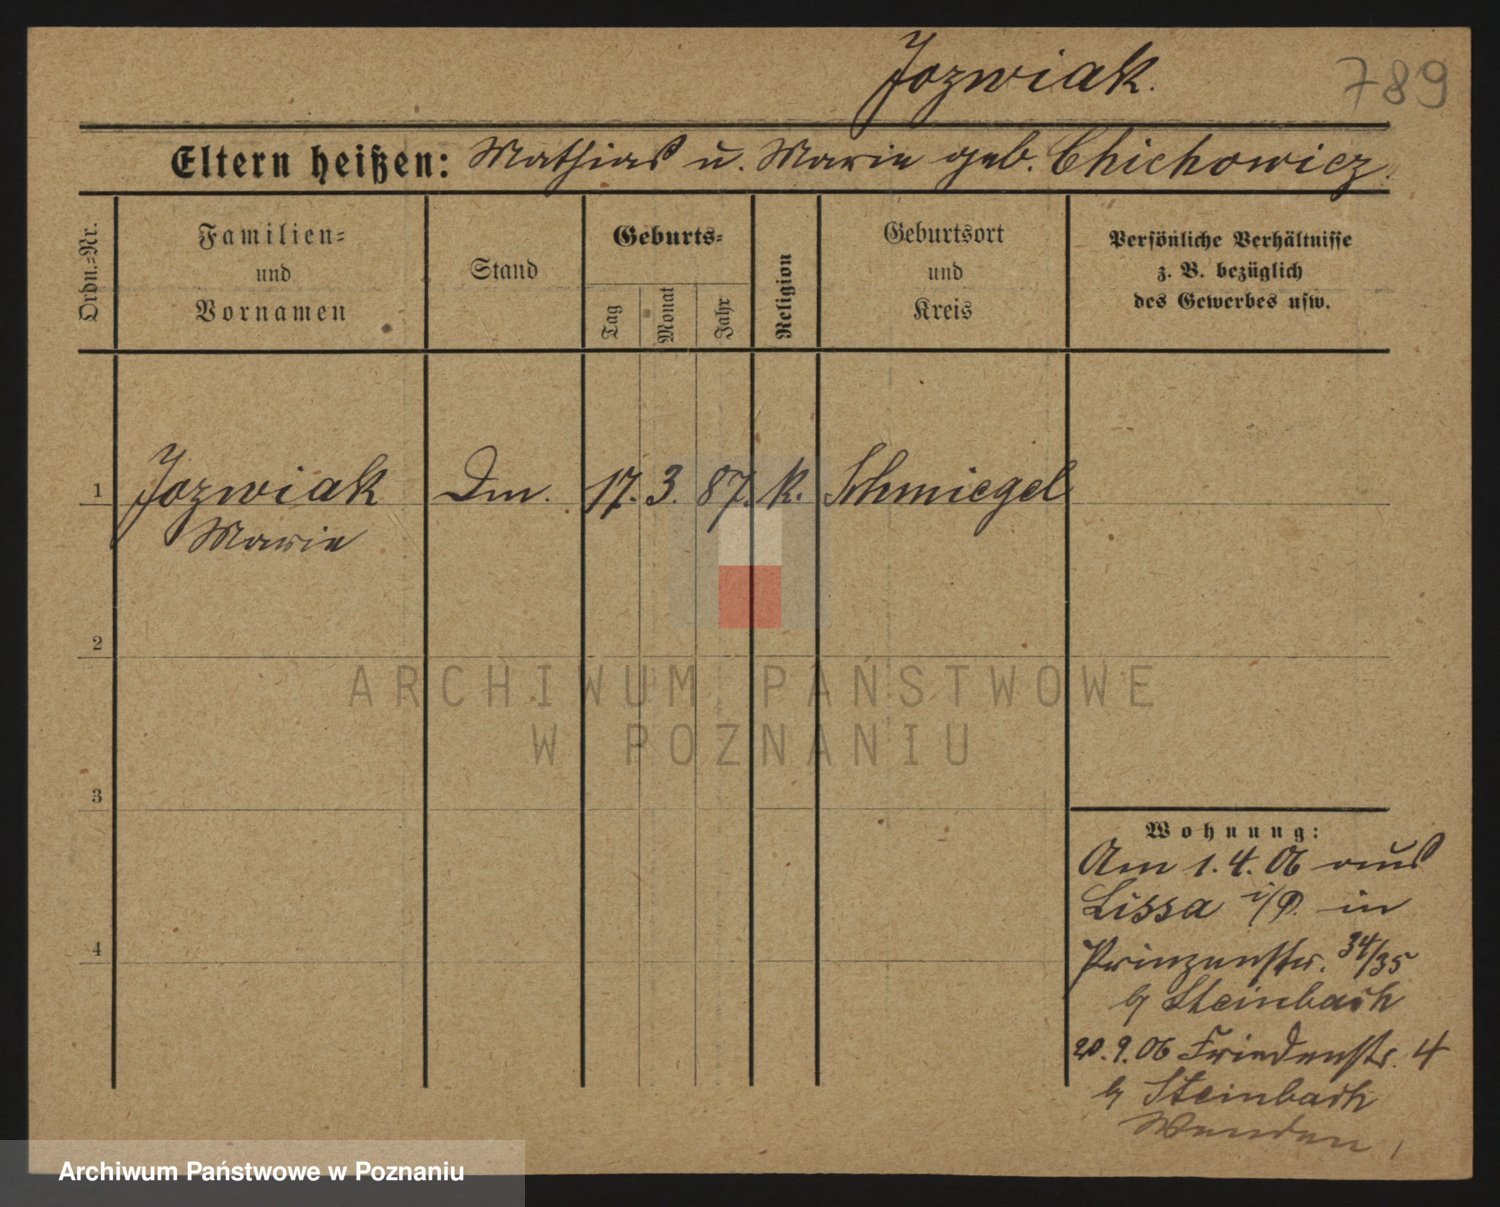 Jozwiak. 789
Eltern heißen: Mathias u. Marie geb. Chichowicz.
Ordn.=Nr.
Familien=
und
Vornamen
Stand
Geburts=
Tag
Monat
Jahr
Religion
Geburtsort
und
Kreis
Persönliche Verhältnisse
z. B. bezüglich
des Gewerbes usw.
1 Jozwiak Dm. 17. 3. 87. k. Schmiegel
Marie
2
3
4
Wohnung:
Am 1.4.06 aus
Lissa i/P. in
Prinzenstr. 34/35
b/ Steinbach
20.9.06 Friedenstr. 4
b/ Steinbach
Wenden
ARCHIWUM PAŃSTWOWE
W POZNANIU
Archiwum Państwowe w Poznaniu